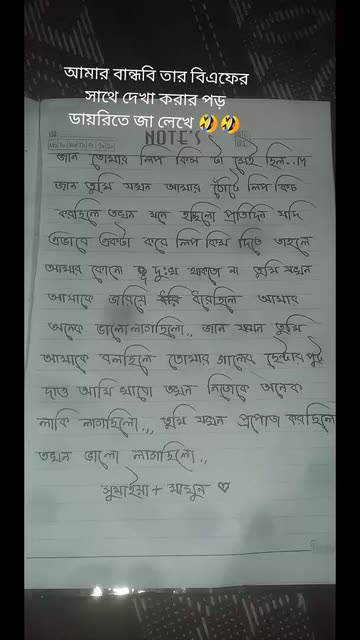 আমার বান্ধবি তার বিএফের
সাথে দেখা করার পড়
ডায়রিতে জা লেখে 🤣🤣
NOTE'S
জান তোমার লিপ কিস টা সেই ছিল..
জান তুমি যখন আমার ঠোঁটে লিপ কিচ
করছিলে তখন মনে হচ্ছিলো প্রতিদিন যদি
এভাবে একটা করে লিপ কিস দিতে তাহলে
আমার কোনো দু:খ থাকতো না তুমি যখন
আমাকে জরিয়ে ধরেছিলে আমার
অনেক ভালোলাগছিলো.. জান যখন তুমি
আমাকে বলছিলে তোমার গালের
দাও আমি খাবো তখন নিজেকে অনেক
লাকি লাগছিলো.,, তুমি যখন প্রপোজ করছিলে
তখন ভালো লাগছিলো.,
সুমাইয়া + মামুন ♡